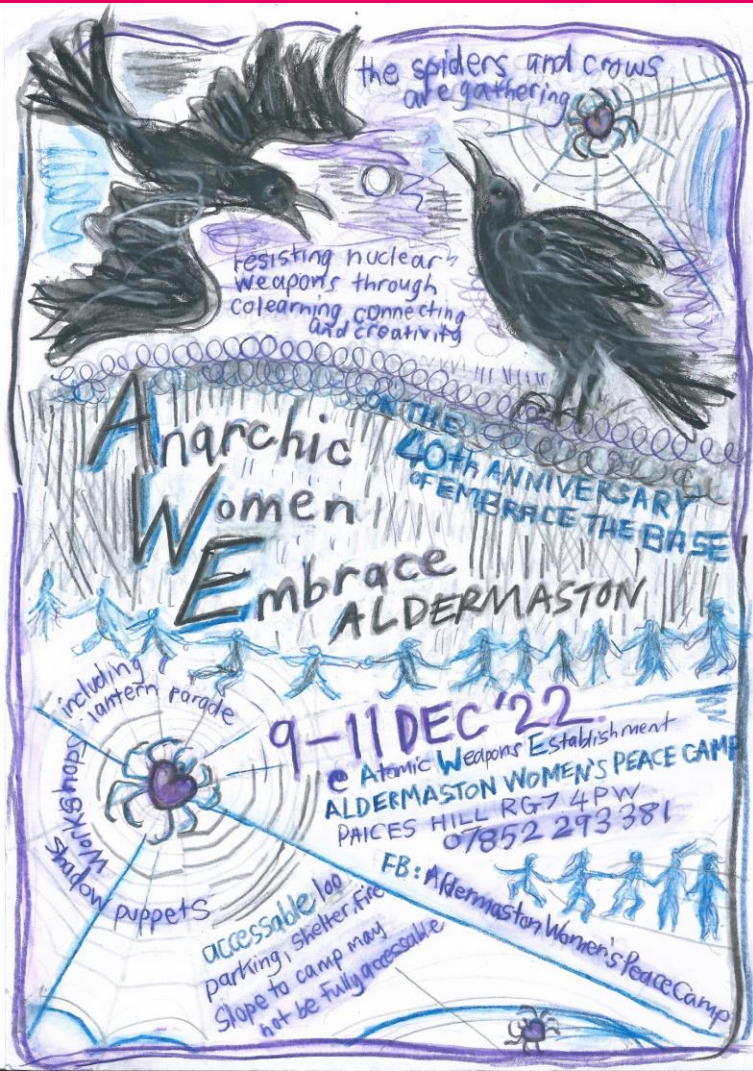 the spiders and crows
are gathering
resisting nuclear
weapons through
colearning, connecting
and creativity
Anarchic
Women
Embrace
ALDERMASTON
ON THE
40th ANNIVERSARY
OF EMBRACE THE BASE
including
lantern parade
workshops
shadow puppets
9-11 DEC '22
@ Atomic Weapons Establishment
ALDERMASTON WOMEN'S PEACE CAMP
PAICES HILL RG7 4PW
07852 293 381
FB: Aldermaston Women's Peace Camp
accessable loo
parking, shelter, fire
Slope to camp may
not be fully accessable